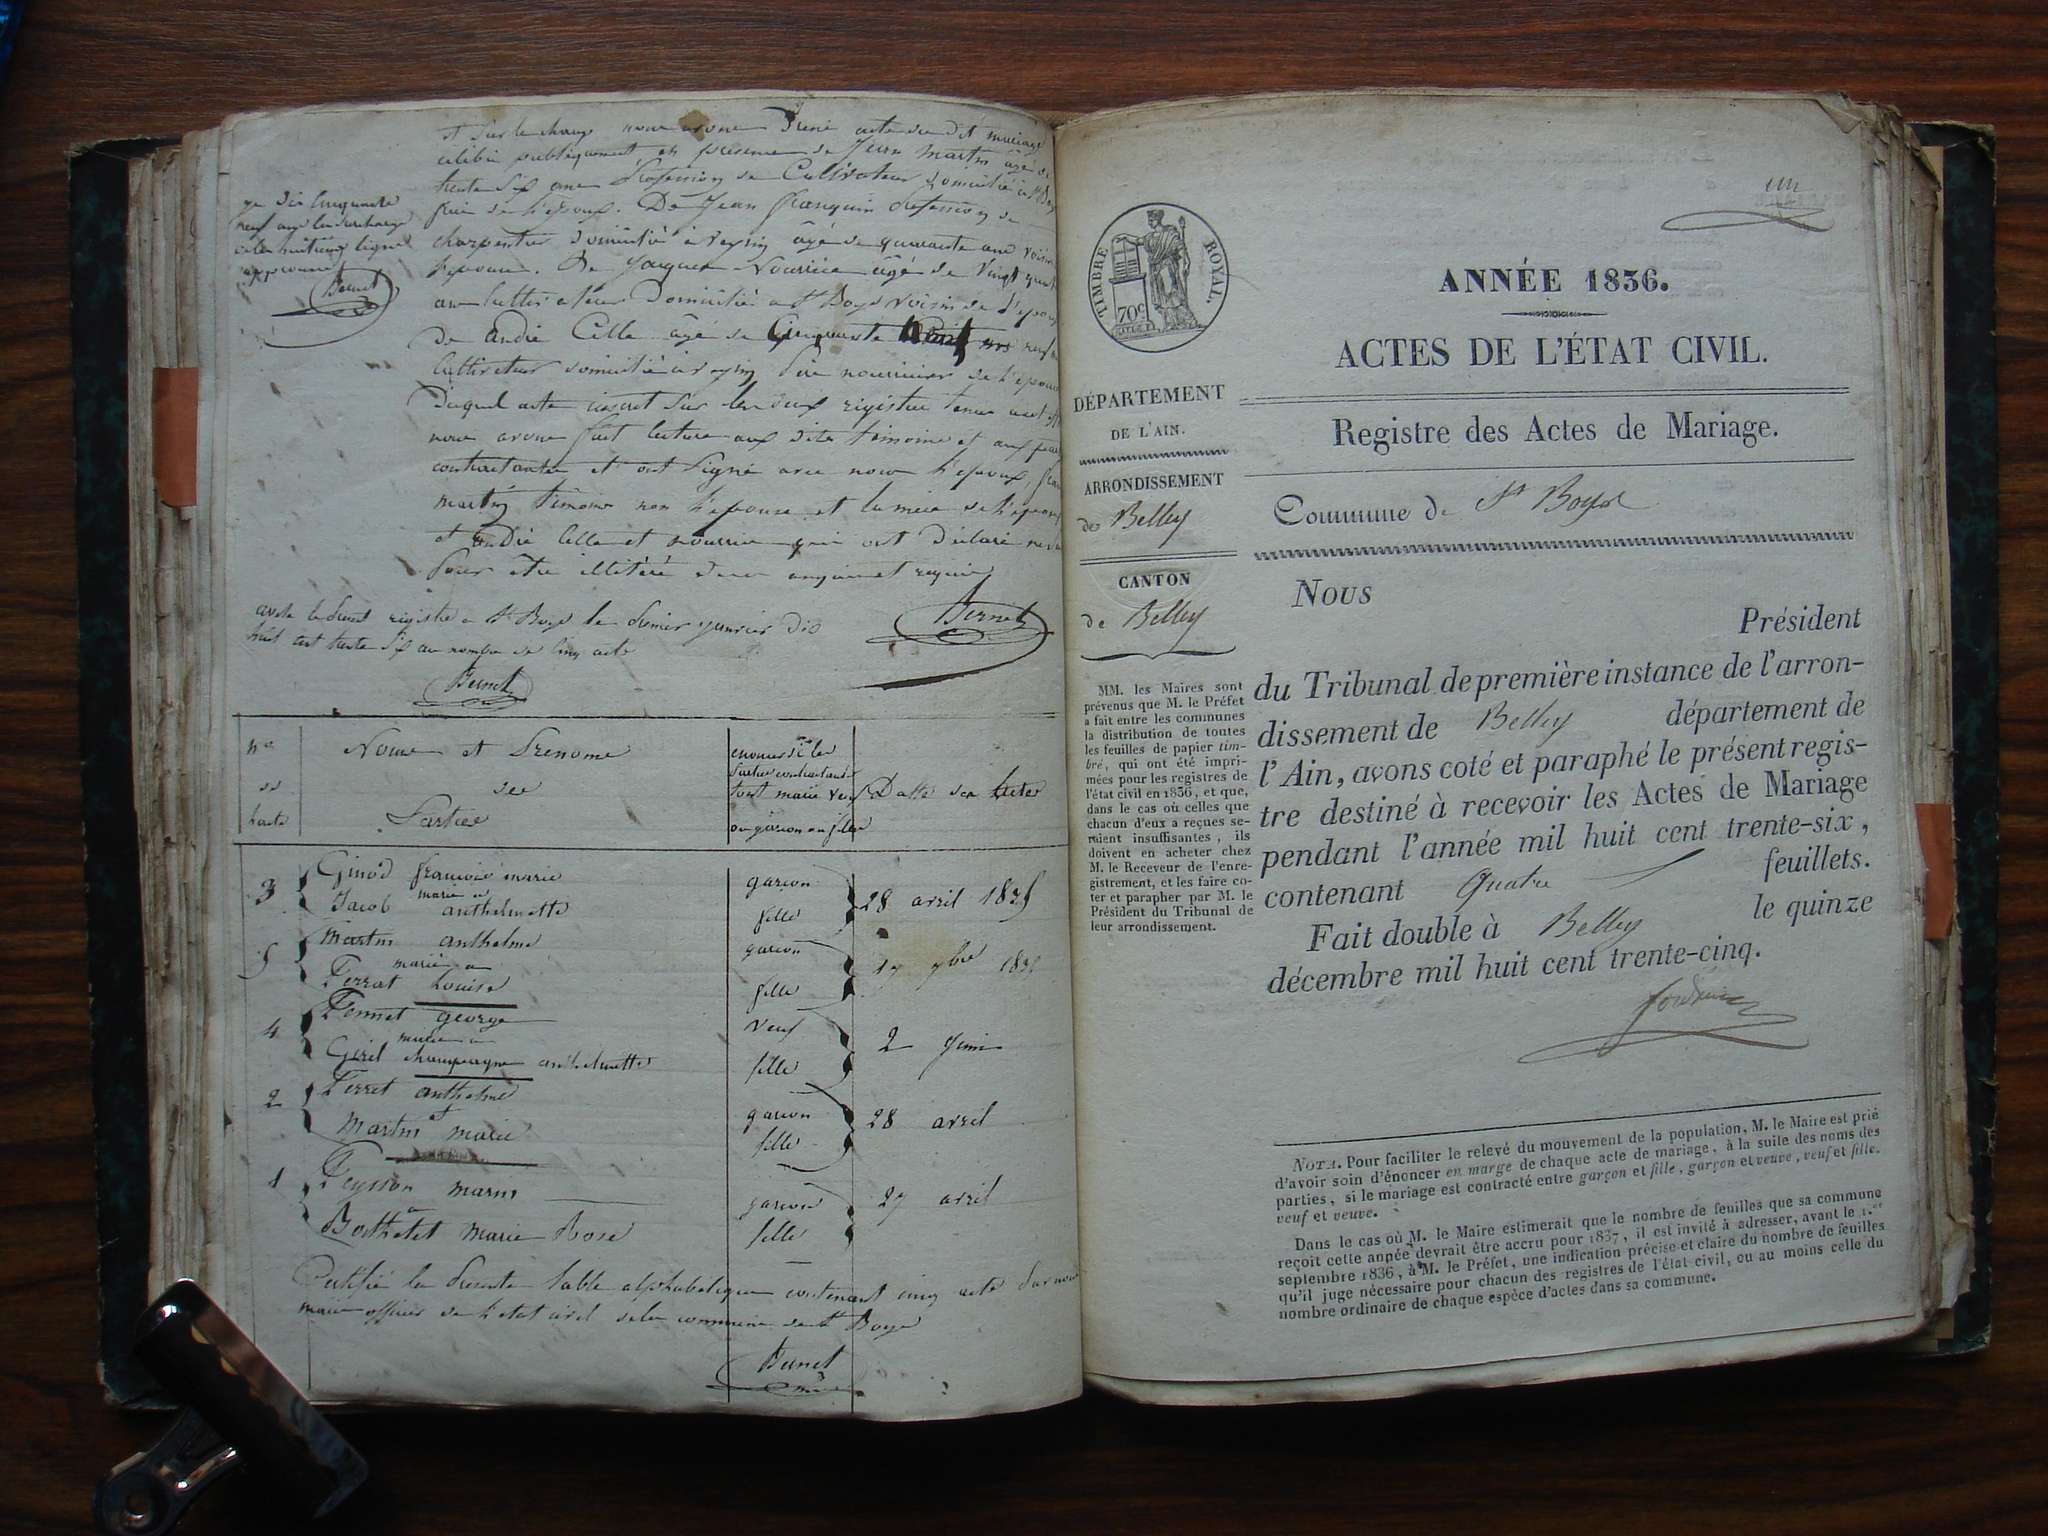 et sur le champ nous avons dit mariage
célébré publiquement en présence de Jean Martin âgé de
trente six ans profession de Cultivateur domicilié à St Boys
frère de l'époux. De Jean franquin profession de
charpentier domicilié à veyrin âgé de quarante ans voisin
l'epouse. De Jacques Nourrice âgé de vingt quatre
ans domicilié a St Boys voisin de l'epoux
De andré Cille âgé de Cinquante neuf
Cultivateur domicilié à veyrin père nourricier de l'epouse
Duquel acte inscrit sur les deux registres
nous avons fait lecture aux dits témoins et aux parties
contractantes et ont signé avec nous l'epoux,
martin témoins non l'epouse et la mère de l'epouse
et andré Cille et nourrice qui ont déclaré
pour être illétéré de ce enquis et requis
Bernet
je dis Cinquante
neuf ans la surcharge
à la huitième ligne
approuvée
Bernet
registre a St Boys le premier janvier dix
huit cent trente six au nombre de cinq acte
Bernet
Nos
de
l'acte
Noms et Prénoms
des
Parties
énoncer si les
parties contractantes
sont marié veuf
ou garcon ou filles
Datte des actes
3
Ginod francois marie
marié a
Jacob anthelmette
garcon
fille
28 avril 1835
5
Martin anthelme
marié a
Perrat Louise
garcon
fille
17 7bre 1835
4
Ponnet george
marié a
Giril champagne anthelmette
veuf
fille
2 Juin
2
Perret anthelme
et
Martin marie
garcon
fille
28 avril
1
Peysson marin
a
Borthelet marie Rose
garcon
fille
27 avril
Certifié la presente table alphabetique contenant cinq acte par nous
maire officier de l'etat civil de la commune de St Boys
Bernet
un
TIMBRE ROYAL.
70c
ANNÉE 1836.
ACTES DE L'ÉTAT CIVIL.
Registre des Actes de Mariage.
Commune de St Boys
DÉPARTEMENT
DE L'AIN.
ARRONDISSEMENT
de Belley
CANTON
de Belley
MM. les Maires sont
prévenus que M. le Préfet
a fait entre les communes
la distribution de toutes
les feuilles de papier tim-
bré, qui ont été impri-
mées pour les registres de
l'état civil en 1836, et que,
dans le cas où celles que
chacun d'eux a reçues se-
raient insuffisantes, ils
doivent en acheter chez
M. le Receveur de l'enre-
gistrement, et les faire co-
ter et parapher par M. le
Président du Tribunal de
leur arrondissement.
Nous
Président
du Tribunal de première instance de l'arron-
dissement de Belley département de
l'Ain, avons coté et paraphé le présent regis-
tre destiné à recevoir les Actes de Mariage
pendant l'année mil huit cent trente-six,
contenant Quatre feuillets.
Fait double à Belley le quinze
décembre mil huit cent trente-cinq.
NOTA. Pour faciliter le relevé du mouvement de la population, M. le Maire est prié
d'avoir soin d'énoncer en marge de chaque acte de mariage, à la suite des noms des
parties, si le mariage est contracté entre garçon et fille, garçon et veuve, veuf et fille,
veuf et veuve.
Dans le cas où M. le Maire estimerait que le nombre de feuilles que sa commune
reçoit cette année devrait être accru pour 1837, il est invité à adresser, avant le 1.er
septembre 1836, à M. le Préfet, une indication précise et claire du nombre de feuilles
qu'il juge nécessaire pour chacun des registres de l'état civil, ou au moins celle du
nombre ordinaire de chaque espèce d'actes dans sa commune.